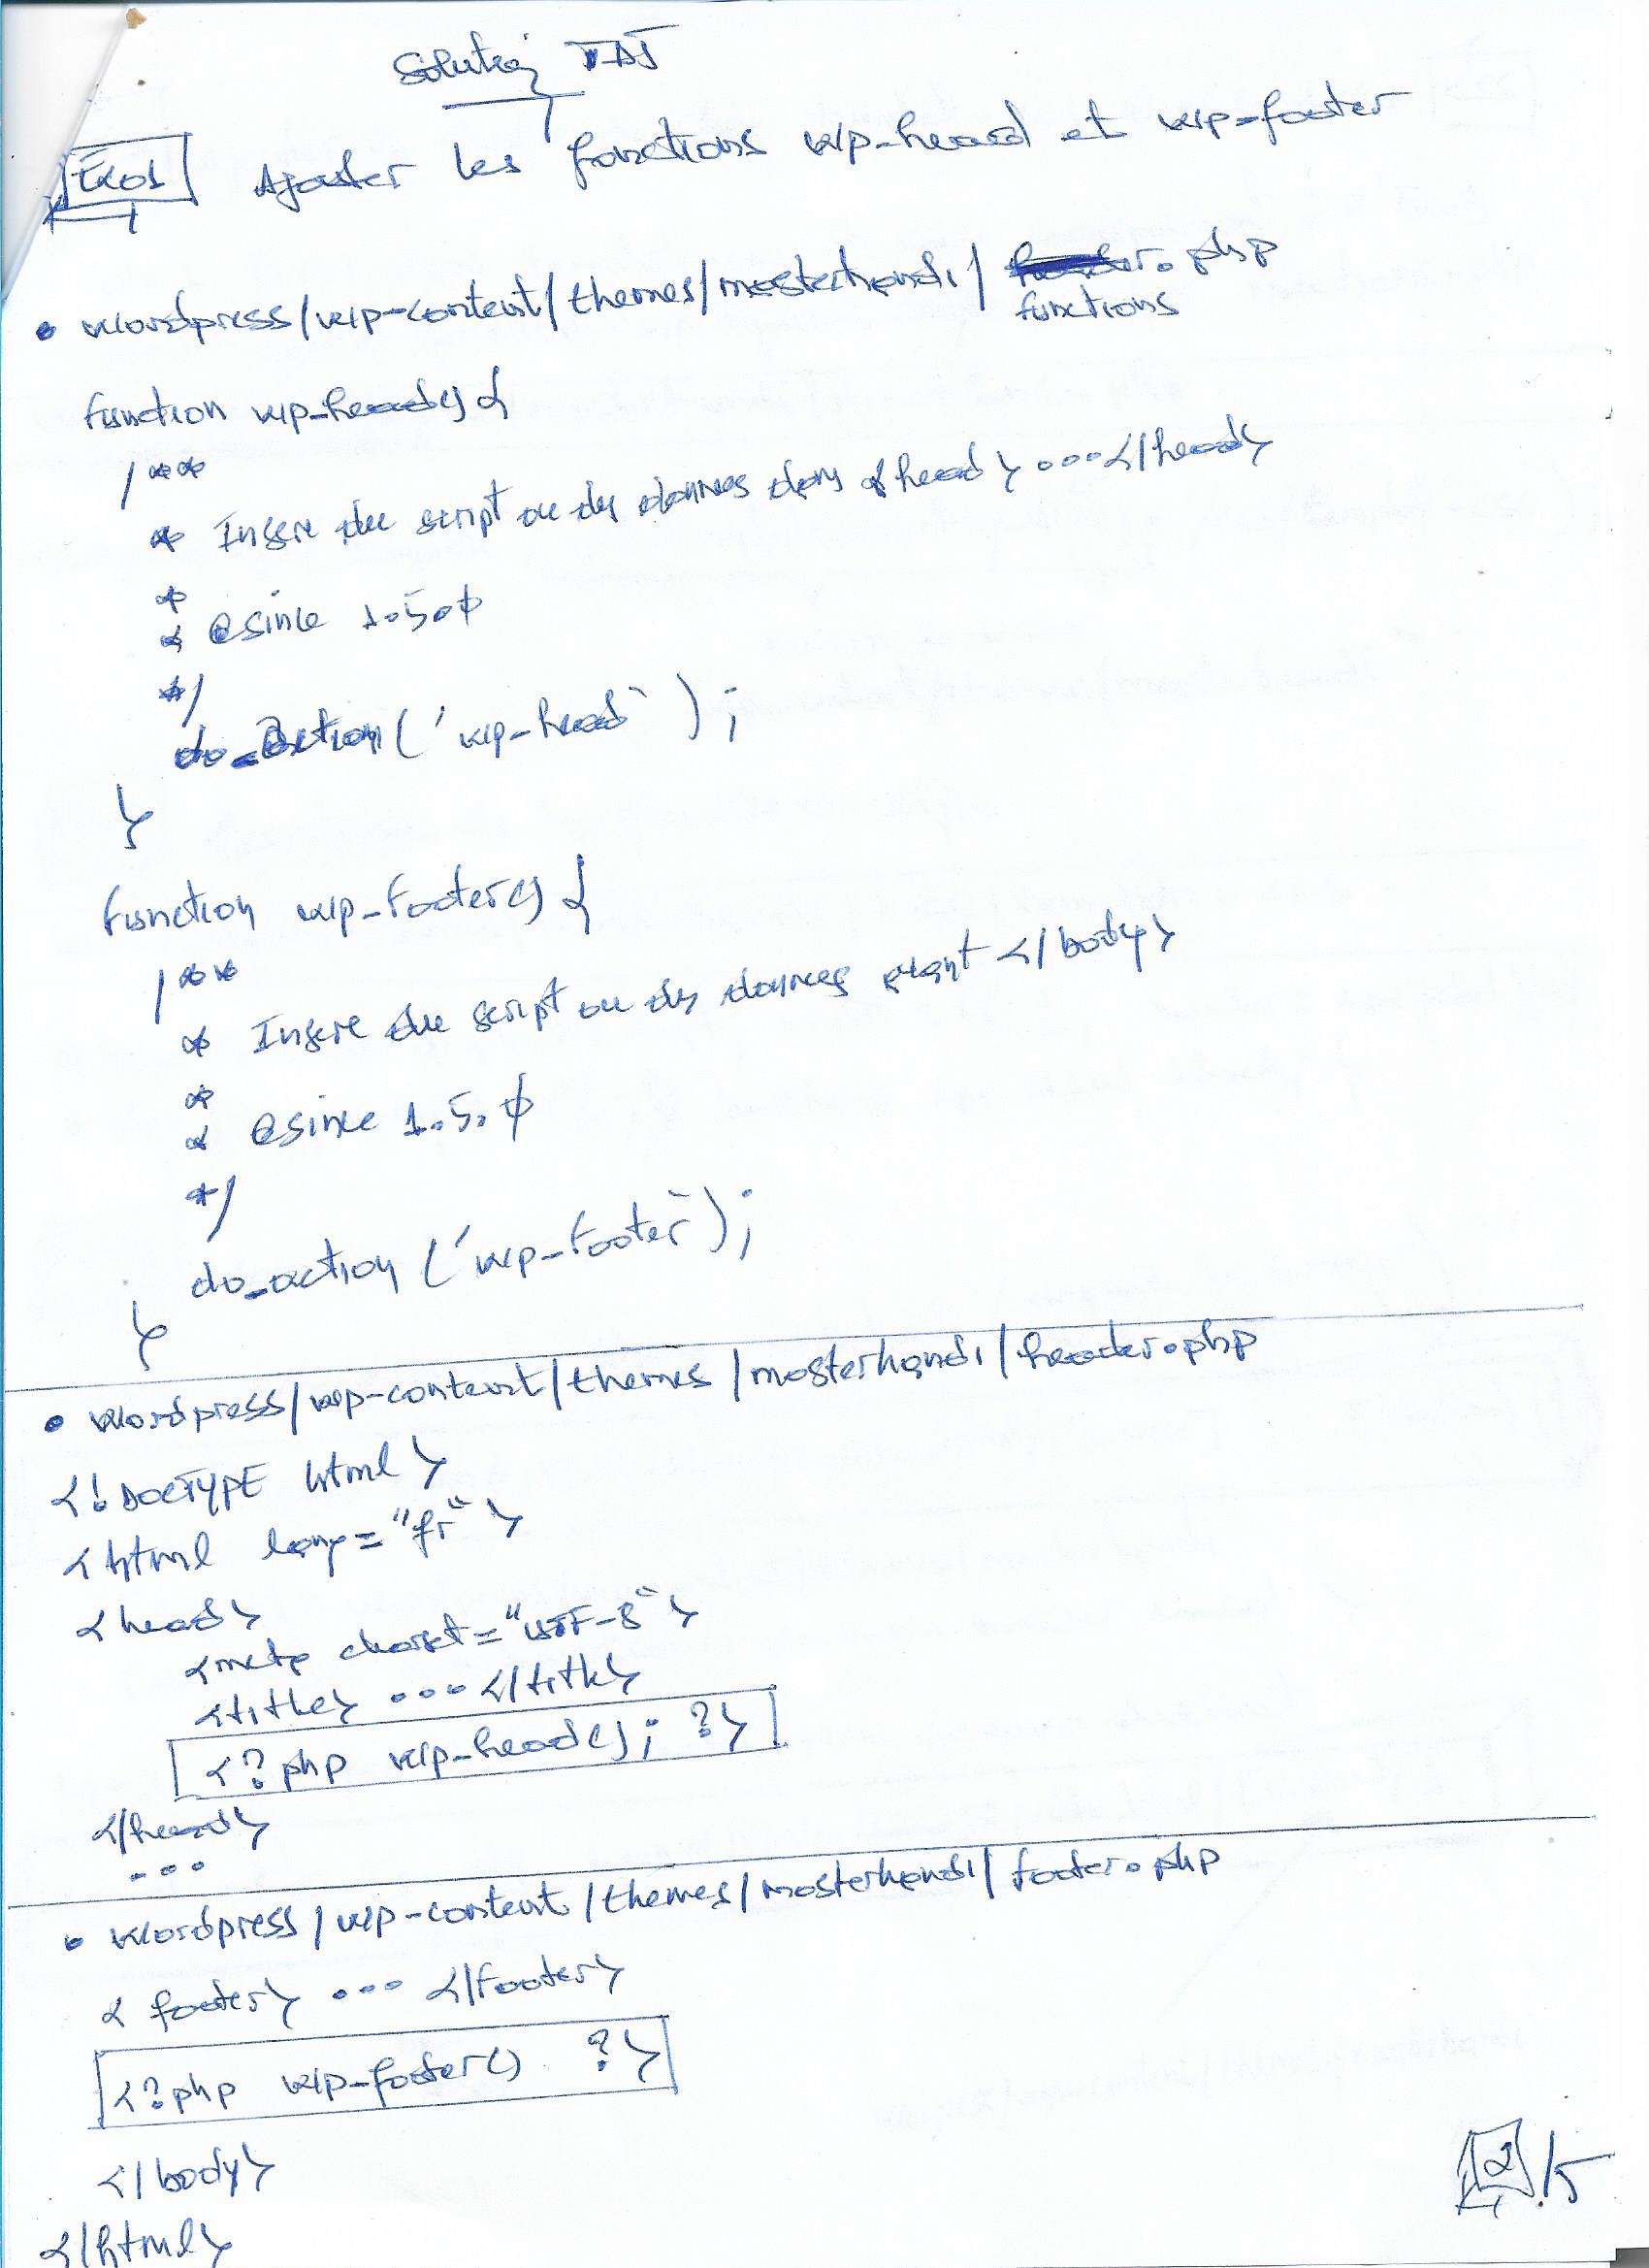 Solution
Exo1 Ajouter les fonctions wp-head et wp-footer
• wordpress/wp-content/themes/masterhandi/ .php
functions
function wp_head() {
/**
* Insere du script ou des donnes dans <head> ... </head>
*
* @since 1.5.0
*/
do_action('wp-head');
}
function wp_footer() {
/**
* Insere du script ou des donnees avant </body>
*
* @since 1.5.0
*/
do_action('wp-footer');
}
• wordpress/wp-content/themes/masterhandi/header.php
<!DOCTYPE html>
<html lang="fr">
<head>
<meta charset="UTF-8">
<title> ... </title>
<?php wp_head(); ?>
</head>
...
• wordpress/wp-content/themes/masterhandi/footer.php
<footer> ... </footer>
<?php wp-footer() ?>
</body>
</html>
2/5